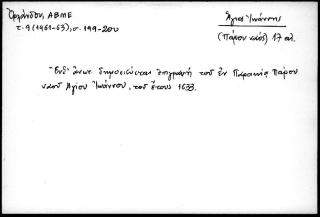 Ὀρλάνδου, ΑΒΜΕ
τ. 9 (1961-63), σ. 199-200
Ἅγιος Ἰωάννης
(Πάρου ναός) 17 αἰ.
Ἐνθ' ἄνωτ. δημοσιεύεται ἐπιγραφή τοῦ ἐν Παροικίᾳ Πάρου
ναοῦ Ἁγίου Ἰωάννου, τοῦ ἔτους 1633.